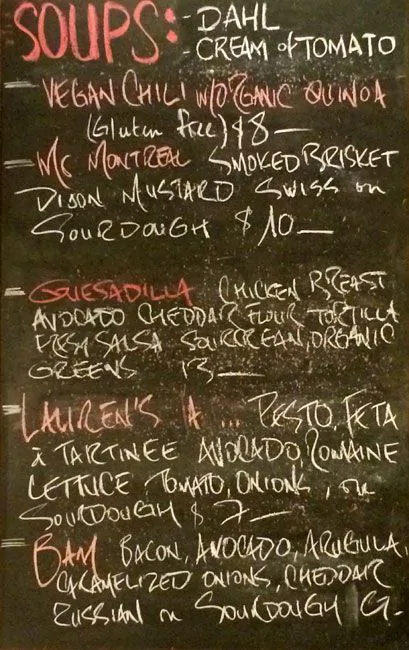 SOUPS: - DAHL
- CREAM of TOMATO
- VEGAN CHILI w/ORGANIC QUINOA
(Gluten free) $8 —
- Mc MONTREAL SMOKED BRISKET
DIJON MUSTARD SWISS on
SOURDOUGH $10 —
- QUESADILLA CHICKEN BREAST
AVOCADO CHEDDAR FLOUR TORTILLA
FRESH SALSA SOURCREAM, ORGANIC
GREENS 13 —
- LAUREN'S ... PESTO, FETA
à TARTINEE AVOCADO, ROMAINE
LETTUCE TOMATO, ONIONS, on
SOURDOUGH $ 7 —
= BAM BACON, AVOCADO, ARUGULA,
CARAMELIZED ONIONS, CHEDDAR
RUSSIAN on SOURDOUGH 9.-